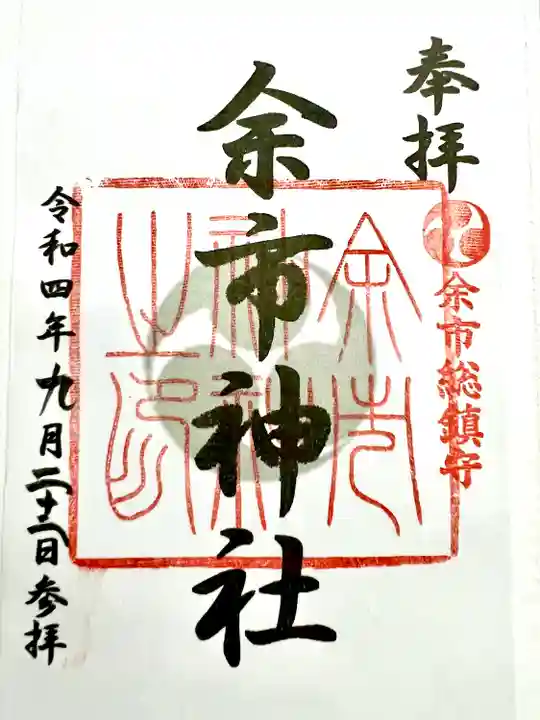 奉拝
余市総鎮守
余市神社
余市神社之印
令和四年九月二十三日参拝